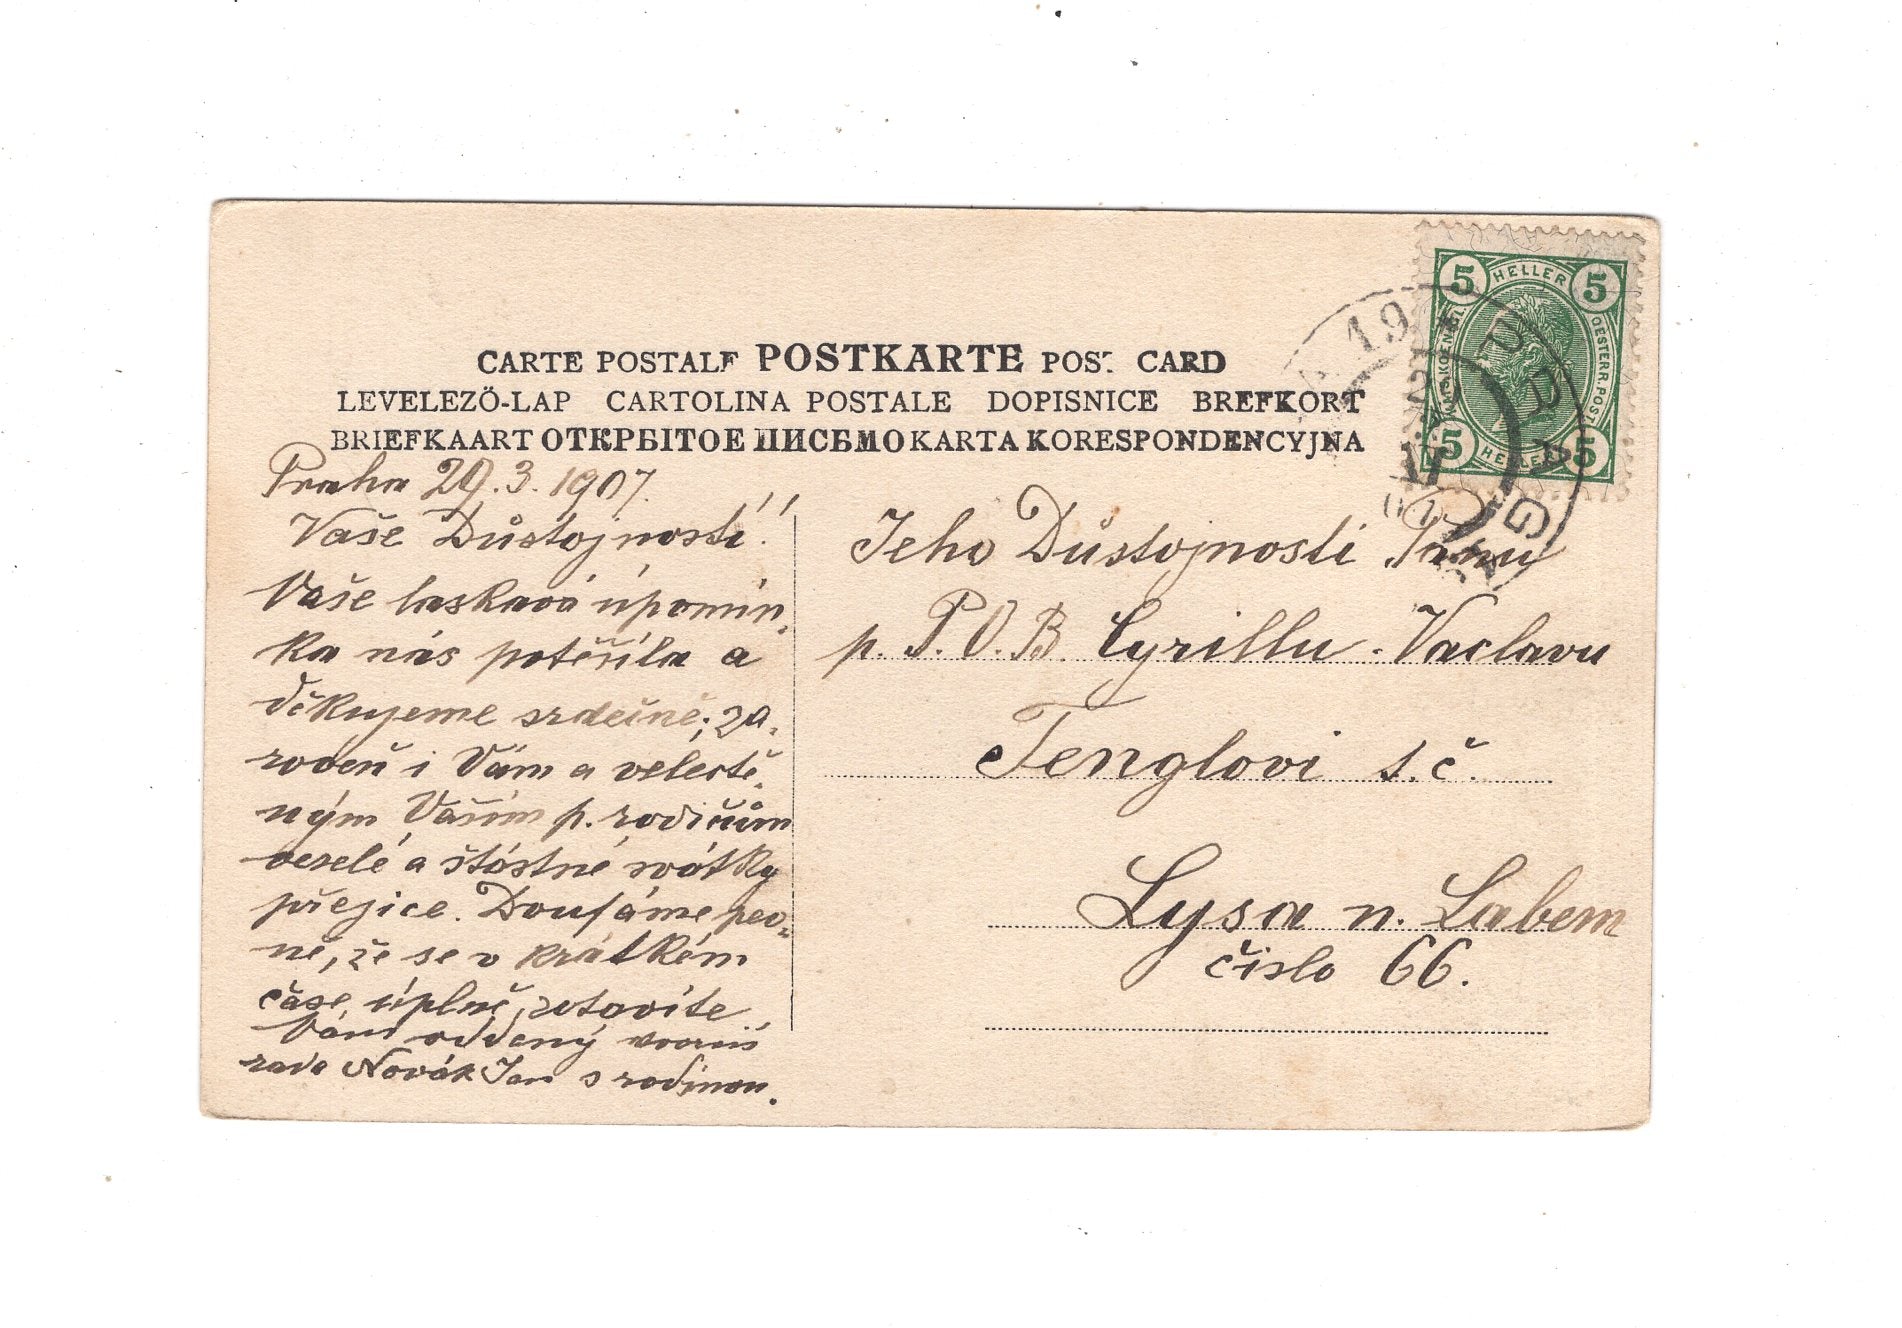 CARTE POSTALE POSTKARTE POST CARD
LEVELEZÖ-LAP CARTOLINA POSTALE DOPISNICE BREFKORT
BRIEFKAART ОТКРЫТОЕ ПИСЬМО KARTA KORESPONDENCYJNA
5 HELLER 5
OESTERR. POST
5 HELLER 5
PRAG
Praha 29.3.1907.
Vaše Důstojnosti!
Vaše laskavá upomín-
ka nás potěšila a
děkujeme srdečně; za-
roveň i Vám a velectě-
ným Vašim p. rodičům
veselé a šťástné svátky
přejíce. Doufáme pev-
ně, že se v krátkém
čase úplně zotavíte
Vám oddaný
rada Novák Jan s rodinou.
Jeho Důstojnosti Panu
p. P.O.B. Cyrillu-Vaclavu
Tenglovi s.č.
Lysa n. Labem
číslo 66.